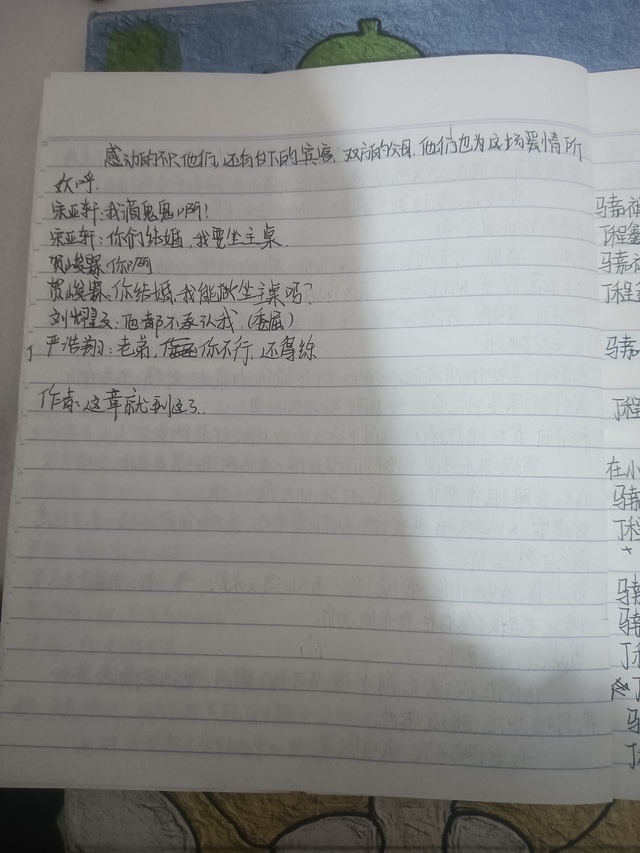 感动的不只他们,还有台下的宾客,双方的父母.他们也为这场爱情所
欢呼.
宋亚轩:我滴鬼鬼啊!
宋亚轩:你们结婚,我要坐主桌.
贺峻霖:你
贺峻霖:你结婚,我能坐主桌吗?
刘耀文:他都不承认我(委屈)
严浩翔:老弟,你不行,还得练
作者:这章就到这了.
马嘉祺
丁程鑫
马嘉祺
丁程鑫
马嘉
丁程
在小
马嘉
丁程
马嘉
马嘉
丁程
丁
马
丁程